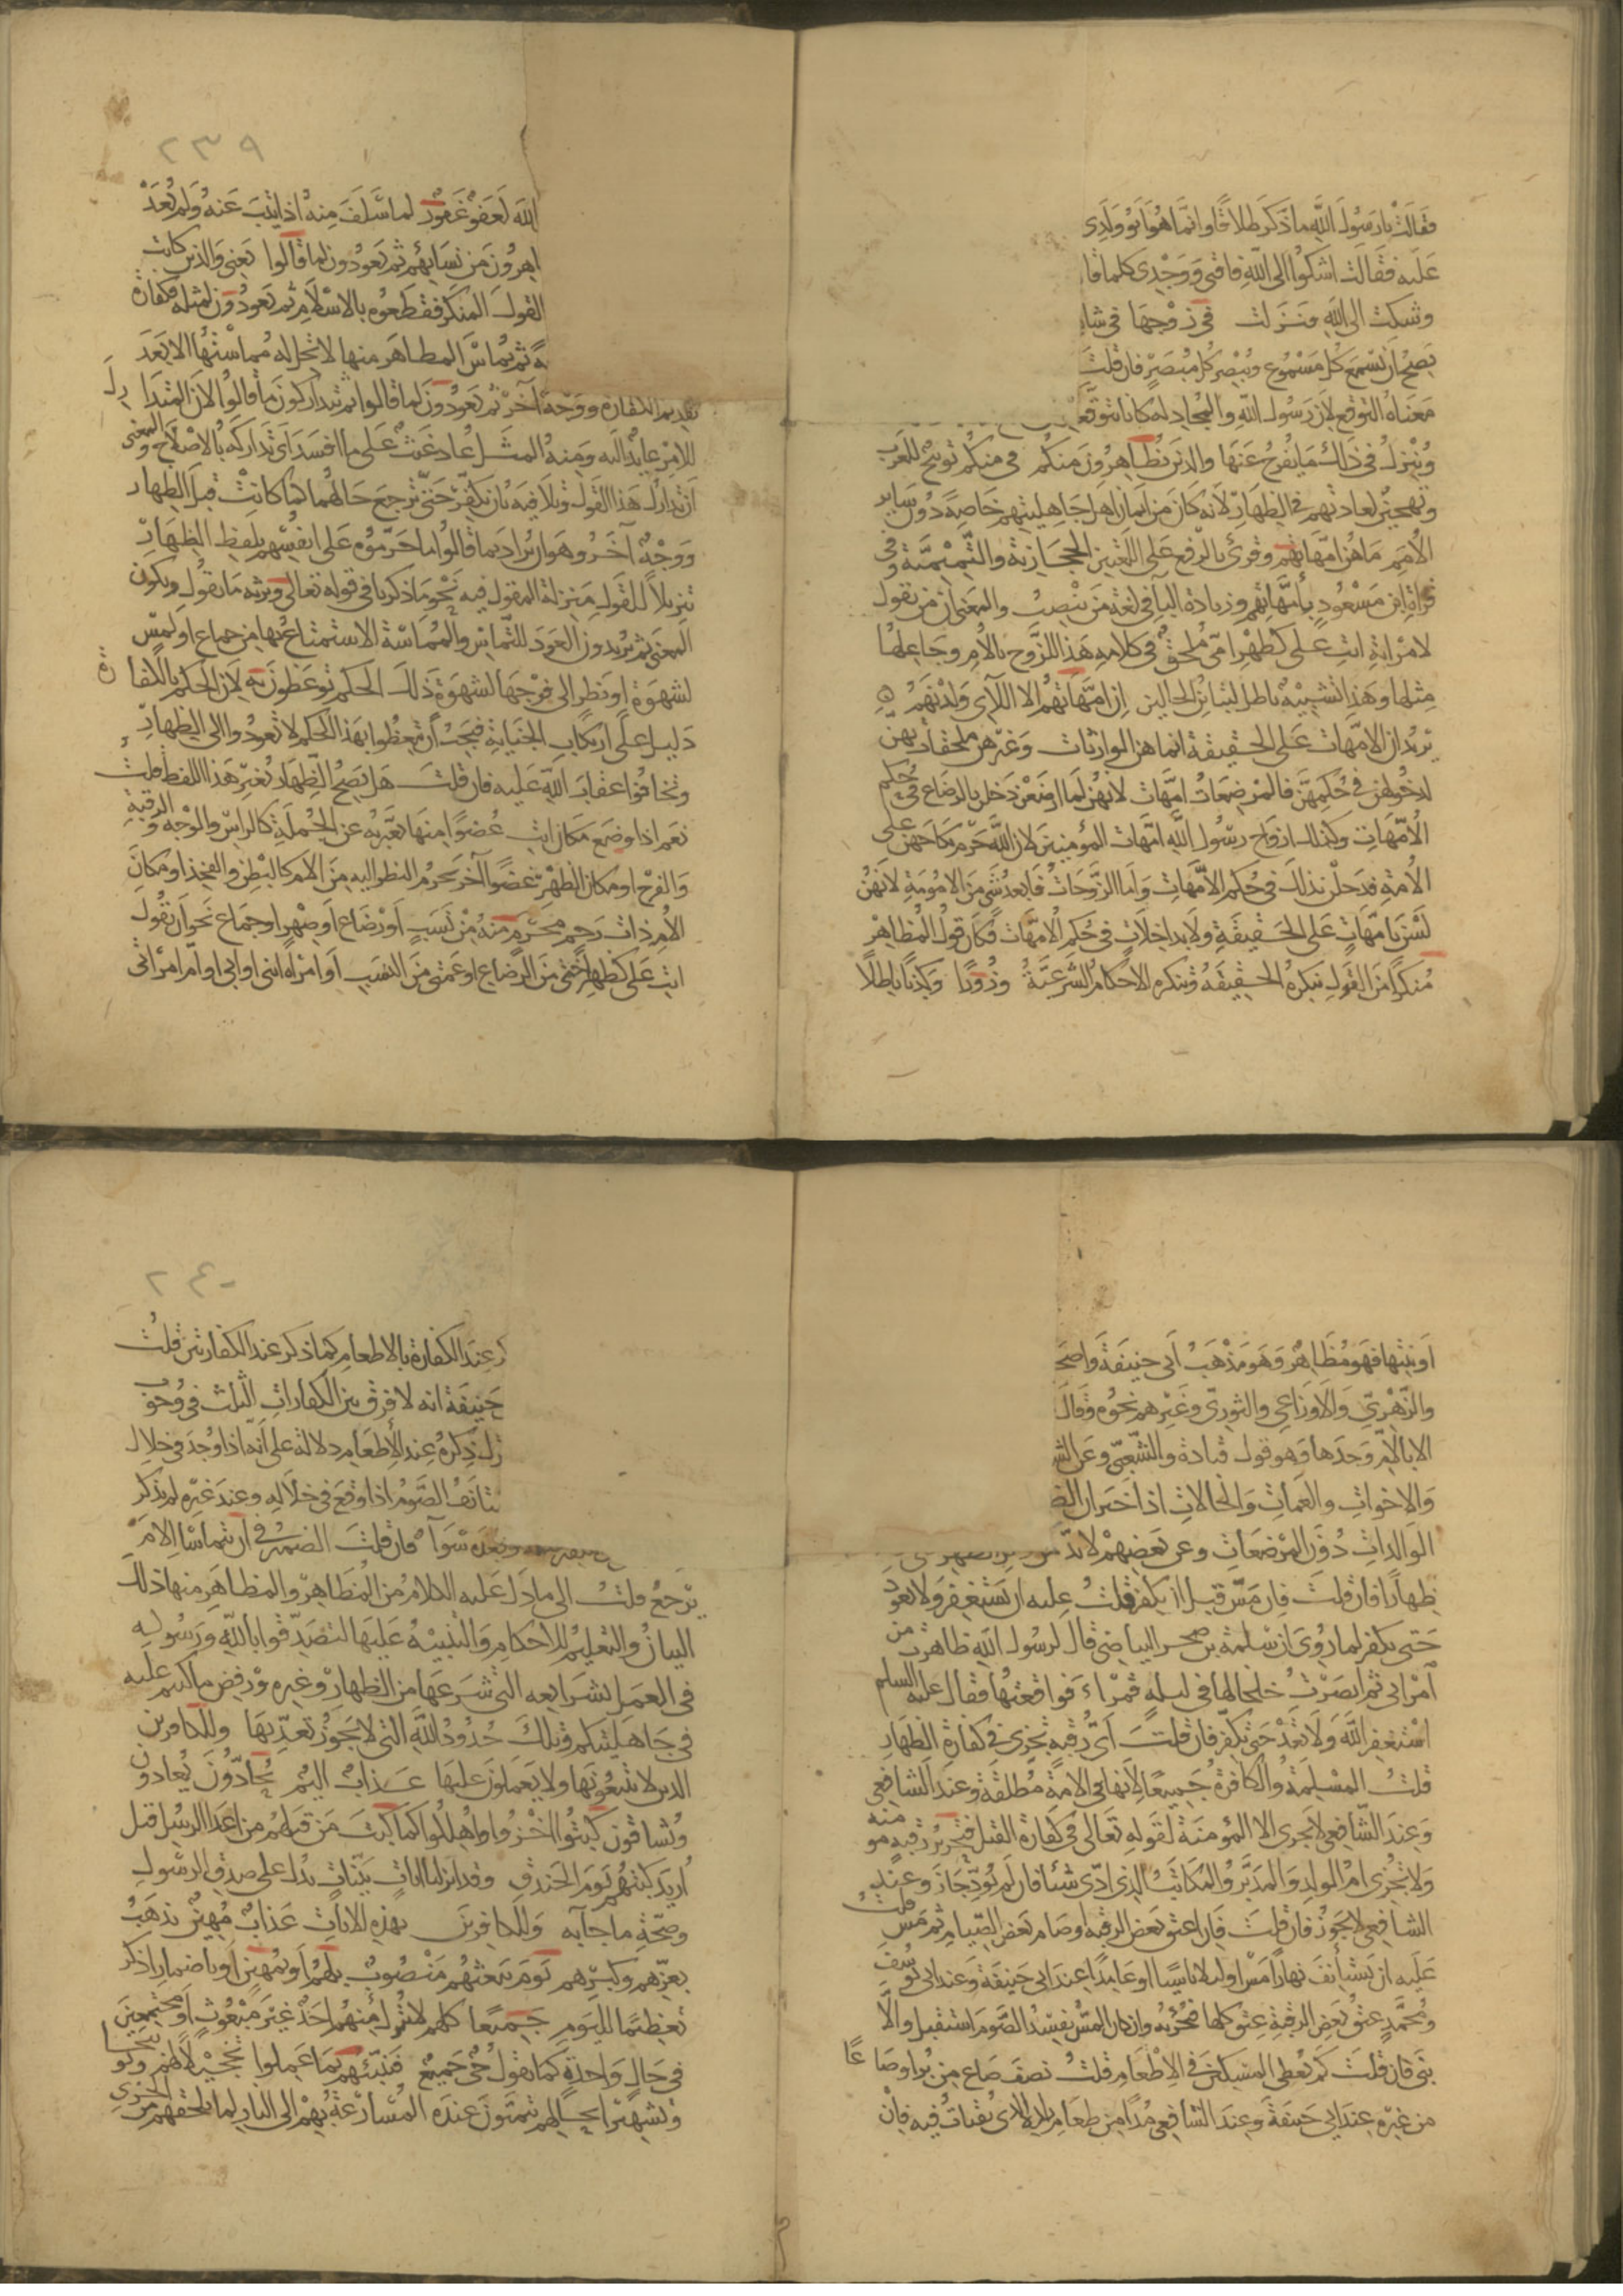 فقالت يا رسول الله ما ذكر طلاقا وانما هو ابو ولدى
عليه فقالت اشكوا الى الله فاقتى ووجدى كلما قا
وشكت الى الله فنزلت فى زوجها فى شا
يصح ان يسمع كل مسموع ويبصر كل مبصر فان قلت
معناه التوقع لان رسول الله والمجادلة كانا يتوقعا
وينزل فى ذلك ما يفرج عنها والذين يظاهرون منكم فى منكم توبيخ للعرب
وتهجين لعادتهم فى الظهار لانه كان من ايمان اهل جاهليتهم خاصة دون ساير
الامم ما هن امهاتهم وقرئ بالرفع على اللغتين الحجازية والتميمية وفى
قراة ابن مسعود بأمهاتهم وزيادة البا فى لغة من ينصب والمعنى ان من يقول
لامراته انت على كظهر امى ملحق فى كلامه هذا للزوج بالام وجاعلها
مثلها وهذا تشبيه باطل لتباين الحالين ان امهاتهم الا اللآى ولدنهم
يريد ان الامهات على الحقيقة انما هن الوالدات وغيرهن ملحقات بهن
لدخولهن فى حكمهن فالمرضعات امهات لانهن لما ارضعن دخلن بالرضاع فى حكم
الامهات وكذلك ازواج رسول الله امهات المؤمنين لان الله حرم نكاحهن على
الامة فدخلن بذلك فى حكم الامهات واما الزوجات فابعد شى من الامومة لانهن
لسن بامهات على الحقيقة ولا بداخلات فى حكم الامهات فكان قول المظاهر
منكرا من القول تنكره الحقيقة وتنكره الاحكام الشرعية وزورا وكذبا باطلا
٢٣٩
الله لعفو غفور لما سلف منه اذا تيب عنه ولم يعد
اهرون من نسائهم ثم يعودون لما قالوا يعنى والذين كانت
القول المنكر فقطعوه بالاسلام ثم يعودون لمثله فكفارة
ة ثم يماس المظاهر منها لا تحل له مماستها الا بعد
تقديم الكفارة ووجه آخر ثم يعودون لما قالوا ثم يتداركون ما قالوا لان المتدارك
للامر عايد اليه ومنه المثل عاد غيث على ما افسد اى تداركه بالاصلاح والمعنى
ان تدارك هذا القول وتلافيه بان يكفر حتى ترجع حالهما كما كانت قبل الظهار
ووجه آخر وهو ان يراد بما قالوا ما حرموه على انفسهم بلفظ الظهار
تنزيلا للقول منزلة المقول فيه نحو ما ذكرنا فى قوله تعالى ونرثه ما يقول ويكون
المعنى ثم يريدون العود للتماس والمماسة الاستمتاع بها من جماع او لمس
لشهوة او نظر الى فرجها لشهوة ذلك الحكم توعظون به لان الحكم بالكفارة
دليل على ارتكاب الجناية فيجب أن تتعظوا بهذا الحكم لا تعودوا الى الظهار
وتخافوا عقاب الله عليه فان قلت هل يصح الظهار بغير هذا اللفظ قلت
نعم اذا وضع مكان انت عضوا منها يعبر به عن الجملة كالراس والوجه والرقبة
والفرج او مكان الظهر عضوا آخر يحرم النظر اليه من الام كالبطن والفخذ او مكان
الام ذات رحم محرم منه من نسب او رضاع او صهر او جماع نحو ان يقول
انت على كظهر اختى من الرضاع او عمتى من النسب او امراة ابنى او ابى او ام امراتى
او بنتها فهو مظاهر وهو مذهب أبى حنيفة واصحا
والزهرى والاوزاعى والثورى وغيرهم نحوه وقال
الا بالام وحدها وهو قول قتادة والشعبى وعن الش
والاخوات والعمات والخالات اذ اخبر ان الظ
الوالدات دون المرضعات وعن بعضهم لا بد من
ظهارا فان قلت فان مس قبل ان يكفر قلت عليه ان يستغفر ولا يعود
حتى يكفر لما روى ان سلمة بن صخر البياضى قال لرسول الله ظاهرت من
امراتى ثم ابصرت خلخالها فى ليلة قمراء فواقعتها فقال عليه السلم
استغفر الله ولا تعد حتى تكفر فان قلت اى رقبة تجزى فى كفارة الظهار
قلت المسلمة والكافرة جميعا لانها فى الامة مطلقة وعند الشافعى
وعند الشافعى لا تجزى الا المؤمنة لقوله تعالى فى كفارة القتل فتحرير رقبة مومنة
ولا تجزى ام الولد والمدبر والمكاتب الذى ادى شئا فان لم يؤد جاز وعند
الشافعى لا يجوز فان قلت فان اعتق بعض الرقبة او صام بعض الصيام ثم مس قلت
عليه ان يستأنف نهارا مس او ليلا ناسيا او عامدا عند ابى حنيفة وعند ابى يوسف
ومحمد عتق بعض الرقبة عتق كلها فتجزيه وان كان المس يفسد الصوم استقبل والا
بنى فان قلت كم يعطى المسكين فى الاطعام قلت نصف صاع من بر او صاعا
من غيره عند ابى حنيفة وعند الشافعى مدا من طعام بلده الذى يقتات فيه فان
٢٤٠
ر عند الكفارة بالاطعام كما ذكر عند الكفارتين قلت
حنيفة انه لا فرق بين الكفارات الثلث فى وجوب
ترك ذكره عند الأطعام دلالة على أنه اذا وجد فى خلال
ستانف الصوم اذا وقع فى خلاله وعند غيره لم يذكر
وبعده سوآ فان قلت الضمير فى ان يتماسا الام
يرجع قلت الى ما دل عليه الكلام من المظاهر والمظاهر منها ذلك
البيان والتعليم للاحكام والتنبيه عليها لتصدقوا بالله ورسوله
فى العمل بشرايعه التى شرعها من الظهار وغيره ورفض ما كنتم عليه
فى جاهليتكم وتلك حدود الله التى لا يجوز تعديها وللكافرين
الذين لا يتبعونها ولا يعملون عليها عذاب اليم يحادون يعادون
ويشاقون كبتوا اخزوا واهلكوا كما كبت من قبلهم من اعدا الرسل قبل
اريد كبتهم يوم الخندق وقد انزلنا ايات بينات تدل على صدق الرسول
وصحة ما جآ به وللكافرين بهذه الايات عذاب مهين يذهب
بعزهم وكبرهم يوم يبعثهم منصوب بلهم او بمهين او باضمار اذكر
تعظيما لليوم جميعا كلهم لا يترك منهم احد غير مبعوث او مجتمعين
فى حال واحدة كما تقول حى جميع فينبئهم بما عملوا تخجيلا لهم وتوبيخا
وتشهيرا بحالهم يتمنون عنده المسارعة بهم الى النار لما يلحقهم من الخزى